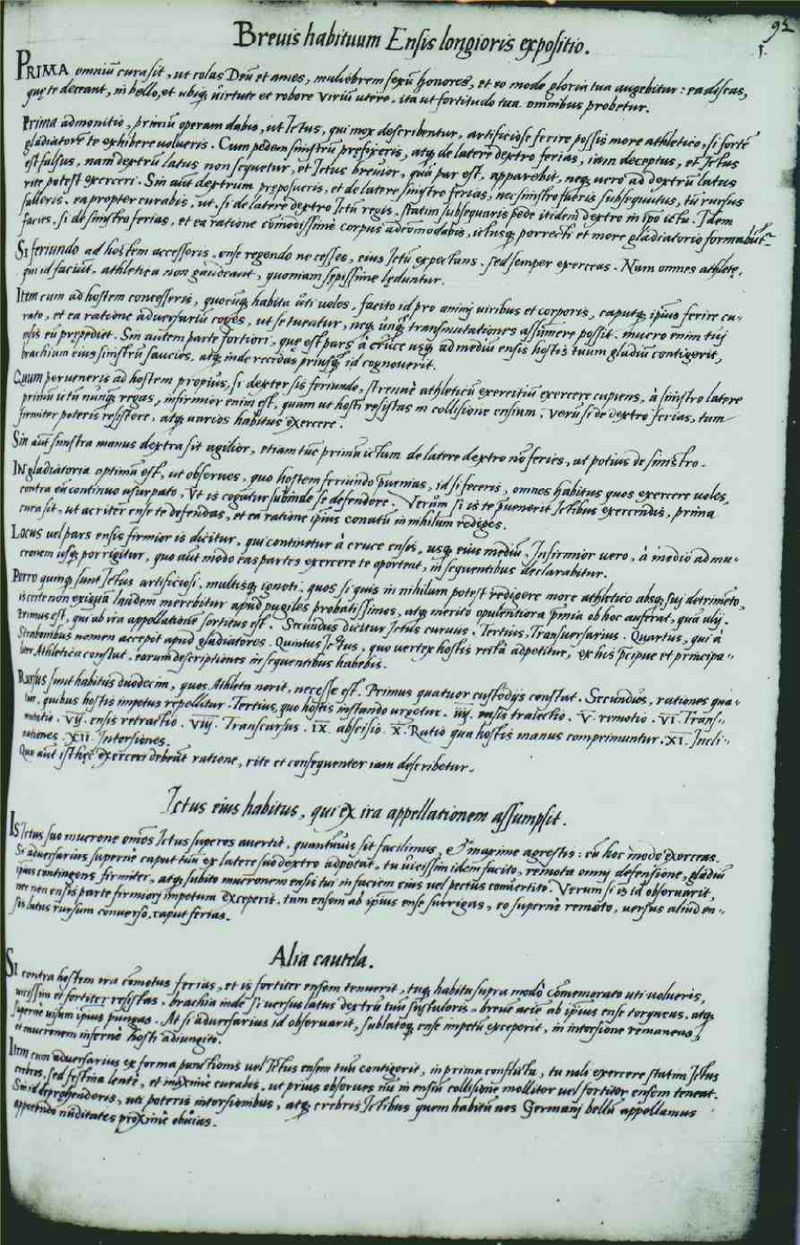 92
1.
Brevis habituum Ensis longioris expositio.
PRIMA omniũ cura sit, ut colas Deũ et ames, muliebrem sexũ honores, et eo modo gloria tua augebitur: ea discas,
quę te deceant, in bello, et ubiq; virtute et robore viriũ utere, ita ut fortitudo tua omnibus probetur.
Prima admonitio, primũ operam dabis, ut Ictus, qui mox describentur, artificiose ferire possis more athletico, si fortè
gladiatorẽ te exhibere volueris. Cum pedem sinistrũ prefixeris, atq; de latere dextro ferias, iam deceptus, et Ictus
est falsus, nam dextrũ latus non sequetur, et Ictus brevior, quã par est, apparebit, neq; vero ad dextrũ latus
rite potest exerceri. Sin aũt dextrum preposueris, et de latere sinistro ferias, nec sinistro fueris subsequutus, tũ rursus
falleris. ea propter curabis, ut, si de latere dextro Ictũ regis, statim subsequaris pede itidem dextro in ipo ictu. Idem
facies, si de sinistro ferias, et ea ratione cõmodissimè corpus adcõmodabis, ictusq; porrecti et more gladiatorio formabũtr.
Si feriundo ad hostem accesseris, ense regendo ne cesses, eius Ictũ expectans. sed semper exerceas. Nam omnes athletę,
qui id faciũt, athletica non gaudeant, quoniam sepissime leduntur.
Item cum ad hostem concesseris, quocũq; habitu uti voles, facito id pro animj viribus et corporis, caputq; ipsius ferire cu-
rato, et ea ratione adversariũ coges, ut se tueatur, neq; unq; transmutationes assumere possit. mucro enim tuj
ensis eũ prepediet. Sin autem parte fortiori, que est pars à cruce usq; ad mediũ ensis hostis tuum gladiũ contigerit,
brachium eius sinistrũ saucies, atq; inde recedas priusq; id cognoverit.
Quum perveneris ad hostem propius, si dexter sis feriundo, strenuè athleticũ exercitiũ exercere cupiens, à sinistro latere
primũ ictũ nunq; regas, infirmior enim est, quam ut hosti resistas in collisione ensium. verũ si de dextro ferias, tum
firmiter poteris resistere, atq; varios habitus exercere.
Sin aũt sinistra manus dextra sit agilior, etiam tũc primũ ictum de latere dextro nõ feries, at potius de sinistro.
IN gladiatoria optimũ est, ut observes, quo hostem feriundo pvenias, id si feceris, omnes habitus quos exercere voles,
contra eũ continuo usurpato. Ut is cogatur subinde se defendere. Verùm si is te pvenerit Ictibus exercendis, prima
cura sit, ut acriter ense te defendas, et ea ratione ipsius conatũ in nihilum rediges.
Locus vel pars ensis firmior is dicitur, qui continetur à cruce ensis, usq; eius mediũ. Infirmior vero, à medio ad mu-
cronem usq; porrigitur, quo aũt modo eas partes exercere te oporteat, in sequentibus declarabitur.
Porro quinq; sunt Ictus artificiosi, multisq; ignoti, quos si quis in nihilum potest redigere more athletico absq; suj detrimẽto,
is certe non exiguã laudem merebitur apud pugiles probatissimos, atq; meritò opulentiora pmia ob hoc auferat, quã alij.
Primus est, qui ab ira appellatione sortitus est. Secundus dicitur Ictus curvus. Tertius, Transversarius. Quartus, qui à
Strabonibus nomen accepit apud gladiatores. Quintus Ictus, quo vertex hostis rectà adpetitur, ex his pcipue et principa-
liter Athletica constat, eorum descriptiones in sequentibus habebis.
Rursus sunt habitus duodecim, quos Athleta norit, necesse est. Primus quatuor custodijs constat. Secundus, rationes qua-
tuor, quibus hostis impetus repellitur. Tertius, quo hostis instando urgetur. iiij. ensis traiectio. V. remotio. VI. Trans-
mutatio. Vij. ensis retractio. Viij. Transcursus. IX. abscisio. X. Ratio qua hostis manus comprimuntur. XI. Incli-
nationes. XII. Intorsiones.
Quo aũt ist hęc exerceri debeãt ratione, rite et consequenter iam describetur.
Ictus eius habitus, qui ex ira appellationem assumpsit.
IS Ictus suo mucrone omẽs Ictus superos avertit, quantumvis sit facilimus, et maxime agrestis: eũ hoc modo exerceas.
Si adversarius supernè caput tuũ ex latere suo dextro adpetat, tu vicissim idem facito, remota omni defensione, gladiũ
ipsius contingens firmiter, atq; subito mucronem ensis tui in faciem eius vel pectus convertito. Verùm si is id observarit,
nec non ensis parte firmiorj impetum exceperit, tum ensem ab ipsius ense surrigas, eo supernè remoto, versus aliud en-
sis latus rursum converso, caput ferias.
Alia cautela.
SI contra hostem ira cõmotus ferias, et is fortiter ensem tenuerit, tuq; habitu supra modò cõmemorato uti volueris,
vicissim ei fortiter resistas, brachia inde si versus latus dextrũ tuũ sustuleris, breve acie ab ipsius ense torqueas, atq;
supernè visum ipsius pungas. At si adversarius id observarit, sublatoq; ense impetũ exceperit, in intorsione remaneas,
et mucronem infernè hosti adiungito.
Item cum adversarius ex forma punctionis vel Ictus ensem tuũ contigerit, in primo conflictu, tu noli exercere statim Ictus
crebros, sed festina lentè, et maximè curabis, ut prius observes nũ in ensiũ collisione mollitèr vel fortiter ensem teneat.
Sin id deprehenderis, uti poteris intorsionibus, atq; crebris Ictibus quem habitũ nos Germanj bellũ appellamus
appetendo nuditates proximè obvias.